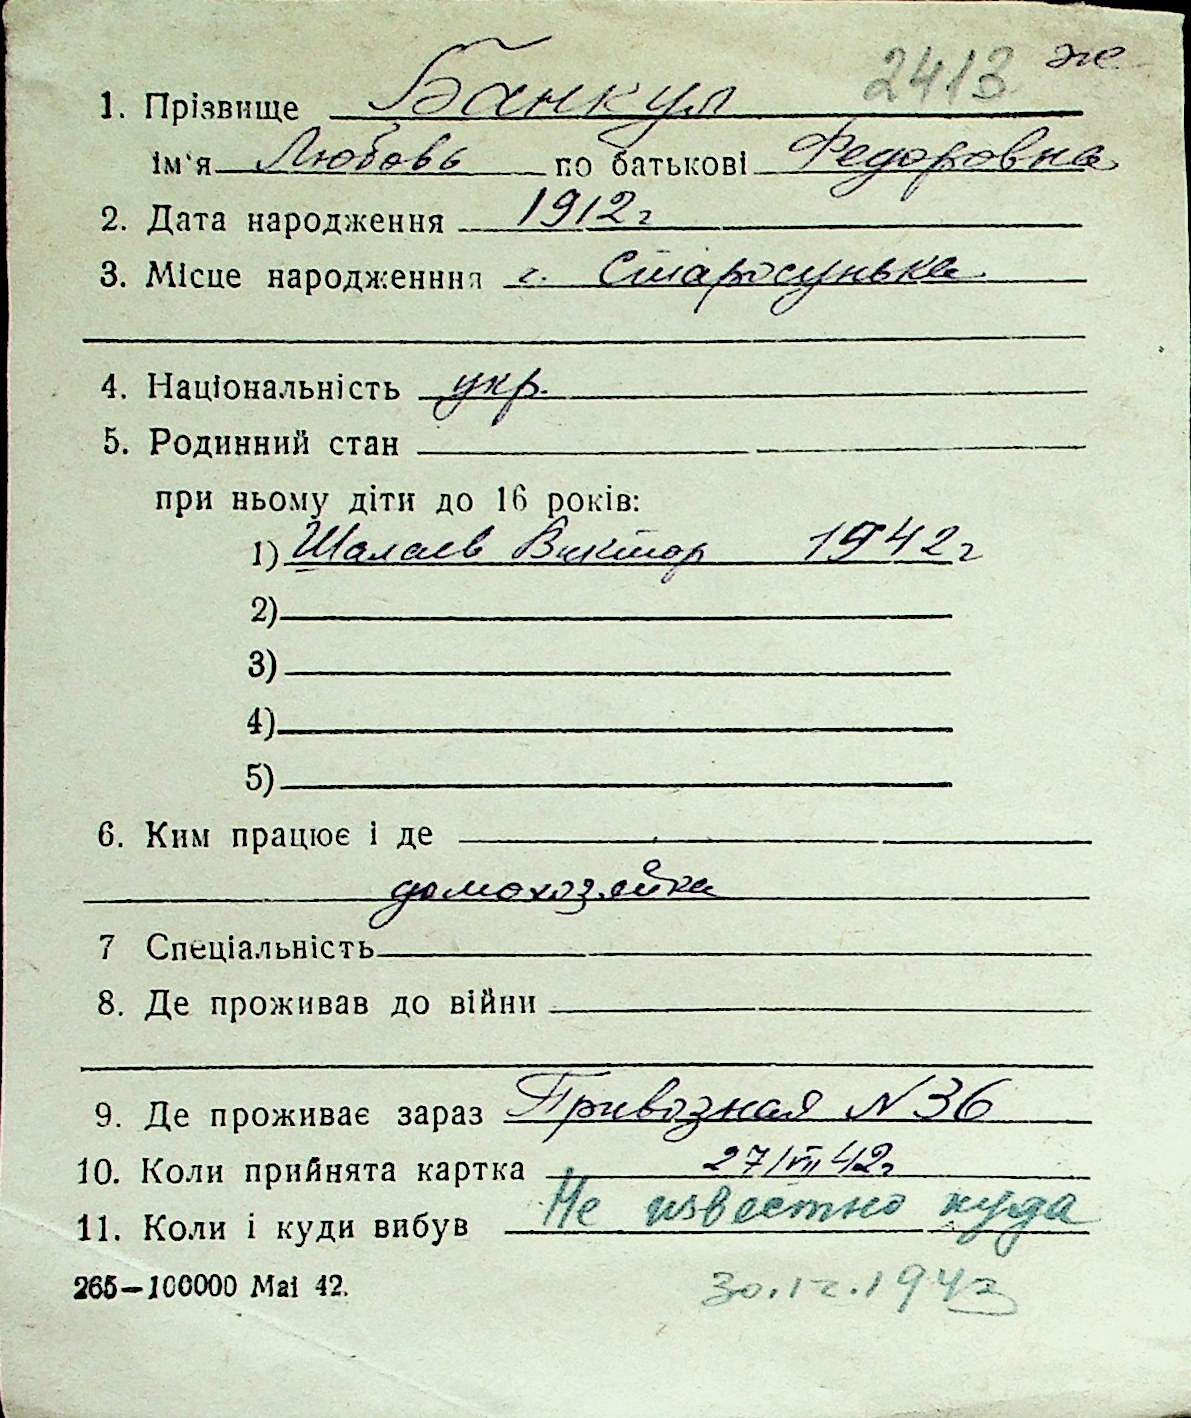 2413 же
1. Прізвище Банкул
ім'я Любовь по батькові Федоровна
2. Дата народження 1912 г
3. Місце народженння с. Старосунька
4. Національність укр.
5. Родинний стан
при ньому діти до 16 років:
1) Шалаев Виктор 1942 г
2)
3)
4)
5)
6. Ким працює і де
домохозяйка
7 Спеціальність
8. Де проживав до війни
9. Де проживає зараз Привозная № 36
10. Коли прийнята картка 27/VII 42 г
11. Коли і куди вибув Не известно куда
265—100000 Маі 42.